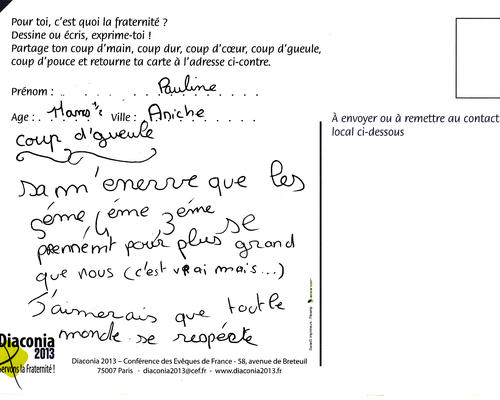 Pour toi, c'est quoi la fraternité ?
Dessine ou écris, exprime-toi !
Partage ton coup d'main, coup dur, coup d'cœur, coup d'gueule,
coup d'pouce et retourne ta carte à l'adresse ci-contre.
Prénom : Pauline
Age : Ville : Aniche
coup d'gueule
sa m'enerve que les
5éme 4éme 3éme
se
prennémt pour plus grand
que nous (c'est vrai mais...)
J'aimerais que tout le
monde se respécte
À envoyer ou à remettre au contact
local ci-dessous
Diaconia
2013
Servons la Fraternité !
Diaconia 2013 – Conférence des Evêques de France - 58, avenue de Breteuil
75007 Paris - diaconia2013@cef.fr - www.diaconia2013.fr